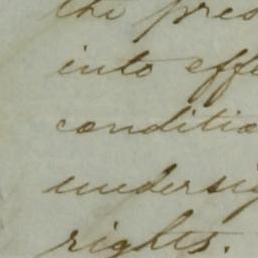 the pres
into effe
conditio
undersig
rights.